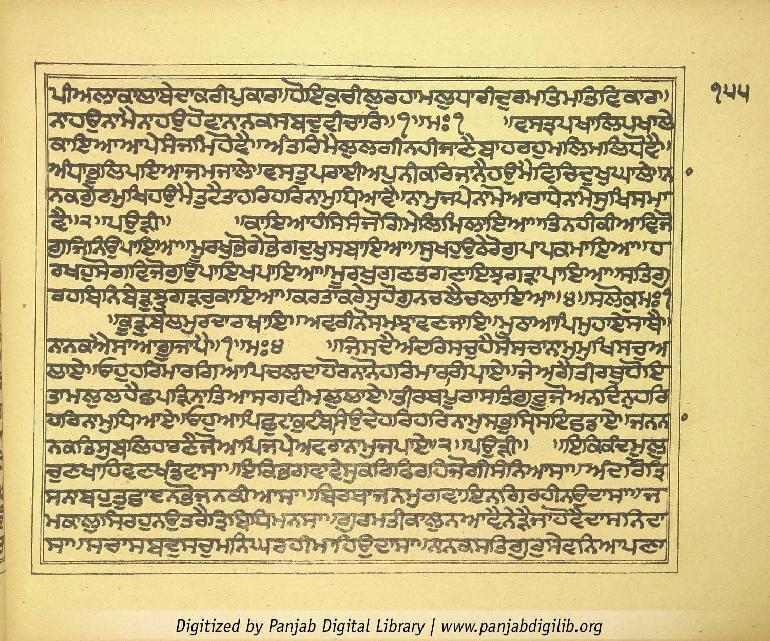 ਪੀਅਲਾਕਾਲਾਬੇਦਾਕਰੀਪੁਕਾਰ॥ਹੋਇਕੁਚੀਲੁਰਹਾਮਲੁਧਾਰੀਦੁਰਮਤਿਮਤਿਵਿਕਾਰ॥ ੧੫੫
ਨਾਹਉਨਾਮੈਨਾਹਉਹੋਵਾਨਾਨਕਸਬਦੁਵੀਚਾਰਿ॥੧॥ਮਃ੧ ॥ਵਸਤ੍ਰਪਖਾਲਿਪਖਾਲੇ
ਕਾਇਆਆਪੇਸੰਜਮਿਹੋਵੈ॥ਅੰਤਰਿਮੈਲੁਲਗੀਨਹੀਜਾਣੈਬਾਹਰਹੁਮਲਿਮਲਿਧੋਵੈ॥
ਅੰਧਾਭੂਲਿਪਇਆਜਮਜਾਲੇ॥ਵਸਤੁਪਰਾਈਅਪੁਨੀਕਰਿਜਾਨੈਹਉਮੈਵਿਚਿਦੁਖੁਘਾਲੇ॥ਨਾ
ਨਕਗੁਰਮੁਖਿਹਉਮੈਤੁਟੈਤਾਹਰਿਹਰਿਨਾਮੁਧਿਆਵੈ॥ਨਾਮੁਜਪੇਨਾਮੋਆਰਾਧੇਨਾਮੇਸੁਖਿਸਮਾ
ਵੈ॥੨॥ਪਉੜੀ॥ ॥ਕਾਇਆਹੰਸਿਸੰਜੋਗੁਮੇਲਿਮਿਲਾਇਆ॥ਤਿਨਹੀਕੀਆਵਿਜੋ
ਗੁਜਿਨਿਉਪਾਇਆ॥ਮੂਰਖੁਭੋਗੇਭੋਗੁਦੁਖਸਬਾਇਆ॥ਸੁਖਹੁਉਠੇਰੋਗਪਾਪਕਮਾਇਆ॥ਹ
ਰਖਹੁਸੋਗੁਵਿਜੋਗੁਉਪਾਇਖਪਾਇਆ॥ਮੂਰਖਗਣਤਗਣਾਇਝਗੜਾਪਾਇਆ॥ਸਤਿਗੁ
ਰਹਥਿਨਿਬੇੜੁਝਗੜੁਚੁਕਾਇਆ॥ਕਰਤਾਕਰੇਸੁਹੋਗੁਨਚਲੈਚਲਾਇਆ॥੪॥ਸਲੋਕੁਮਃ੧
॥ਕੂੜੁਬੋਲਿਮੁਰਦਾਰੁਖਾਇ॥ਅਵਰੀਨੋਸਮਝਾਵਣਿਜਾਇ॥ਮੁਠਾਆਪਿਮੁਹਾਏਸਾਥੈ॥
ਨਾਨਕਐਸਾਆਗੂਜਾਪੈ॥੧॥ਮਃ੪ ॥ਜਿਸਦੈਅੰਦਰਿਸਚੁਹੈਸੋਸਚਾਨਾਮੁਮੁਖਿਸਚੁਅ
ਲਾਏ॥ਓਹੁਹਰਿਮਾਰਗਿਆਪਿਚਲਦਾਹੋਰਨਾਨੋਹਰਿਮਾਰਗਿਪਾਏ॥ਜੇਅਗੈਤੀਰਥੁਹੋਇ
ਤਾਮਲੁਲਹੈਛਪੜਿਨਾਤੈਸਗਵੀਮਲੁਲਾਏ॥ਤੀਰਥੁਪੂਰਾਸਤਿਗੁਰੂਜੋਅਨਦਿਨੁਹਰਿ
ਹਰਿਨਾਮੁਧਿਆਏ॥ਓਹੁਆਪਿਛੁਟਾਕੁਟੰਬਸਿਉਦੇਹਰਿਹਰਿਨਾਮੁਸਭਸ੍ਰਿਸਟਿਛਡਾਏ॥ਜਨਨਾ
ਨਕਤਿਸੁਬਲਿਹਾਰਣੈਜੋਆਪਿਜਪੈਅਵਰਾਨਾਮੁਜਪਾਏ॥੨॥ਪਉੜੀ॥ ॥ਇਕਿਕੰਦਮੂਲੁ
ਚੁਣਿਖਾਹਿਵਣਖੰਡਿਵਾਸਾ॥ਇਕਿਭਗਵਾਵੇਸੁਕਰਿਫਿਰਹਿਜੋਗੀਸੰਨਿਆਸਾ॥ਅੰਦਰਿਤ੍ਰਿ
ਸਨਾਬਹੁਤੁਛਾਦਨਭੋਜਨਕੀਆਸਾ॥ਬਿਰਥਾਜਨਮੁਗਵਾਇਨਗਿਰਹੀਨਉਦਾਸਾ॥ਜ
ਮਕਾਲੁਸਿਰਹੁਨਉਤਰੈਤ੍ਰਿਬਿਧਿਮਨਸਾ॥ਗੁਰਮਤੀਕਾਲੁਨਆਵੈਨੇੜੈਜਾਹੋਵੈਦਾਸਨਿਦਾ
ਸਾ॥ਸਚਾਸਬਦੁਸਚੁਮਨਿਘਰਹੀਮਾਹਿਉਦਾਸਾ॥ਨਾਨਕਸਤਿਗੁਰੁਸੇਵਨਿਆਪਣਾ
Digitized by Panjab Digital Library | www.panjabdigilib.org